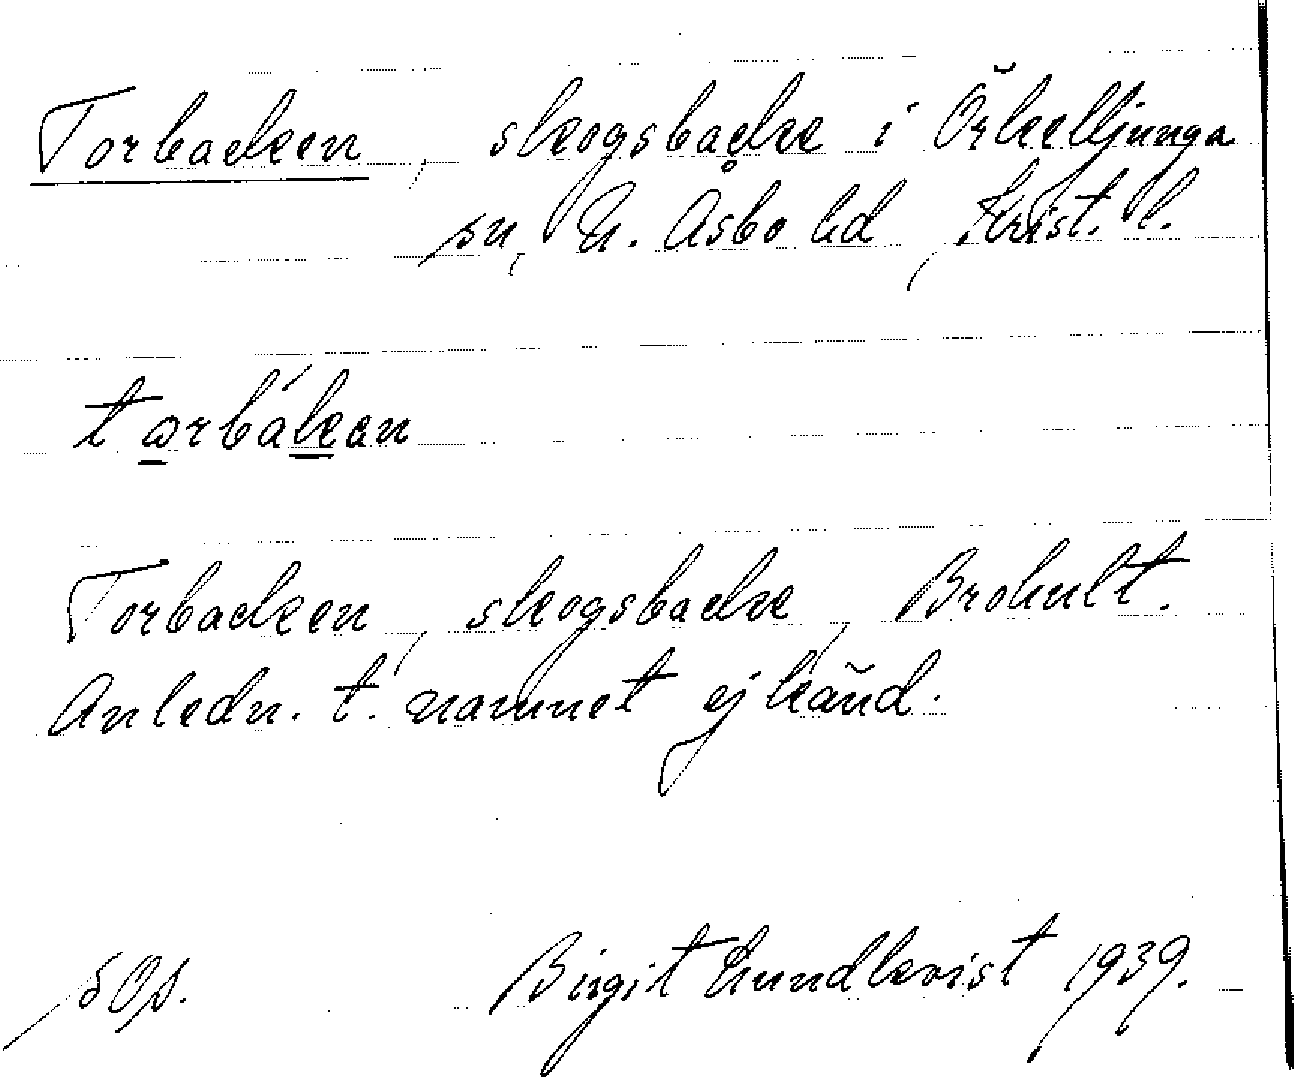 Torbacken, skogsbacke i Örkelljunga
sn, N. Åsbo hd, Krist. l.
Torbacken, skogsbacke, Brohult.
Anledn. t. namnet ej känd.
Birgit Lundkvist 1939.